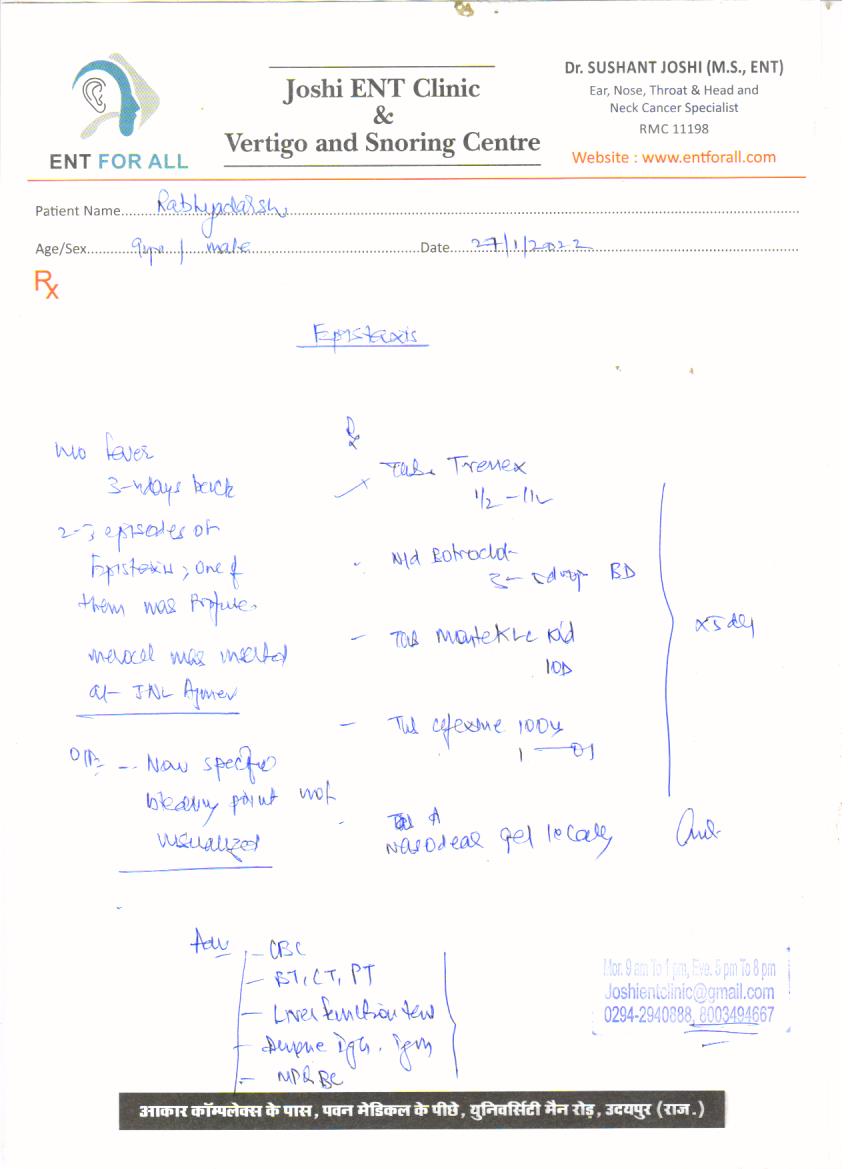 ENT FOR ALL
Joshi ENT Clinic
&
Vertigo and Snoring Centre
Dr. SUSHANT JOSHI (M.S., ENT)
Ear, Nose, Throat & Head and
Neck Cancer Specialist
RMC 11198
Website : www.entforall.com
Patient Name
Age/Sex 9yrs / male Date 27/1/2022
Rx
Epistaxis
fever
3-4 days back
2-3 episodes of
Epistaxis, one of
them was Profuse.
merocel was inserted
at JNL Ajmer
O/E -
specific
bleeding point not
visualized
Rx
Tab. Trenex
1/2 -
N/d
drop BD
Tab Kid
Tab cefexime 100
gel locally
x5 day
Adv - CBC
- BT, CT, PT
- Liver function test
- Dengue IgG, IgM
Mor. 9 am To 1 pm, Eve. 5 pm To 8 pm
Joshientclinic@gmail.com
0294-2940888, 8003494667
आकार कॉम्पलेक्स के पास, पवन मेडिकल के पीछे, युनिवर्सिटी मैन रोड़, उदयपुर (राज.)